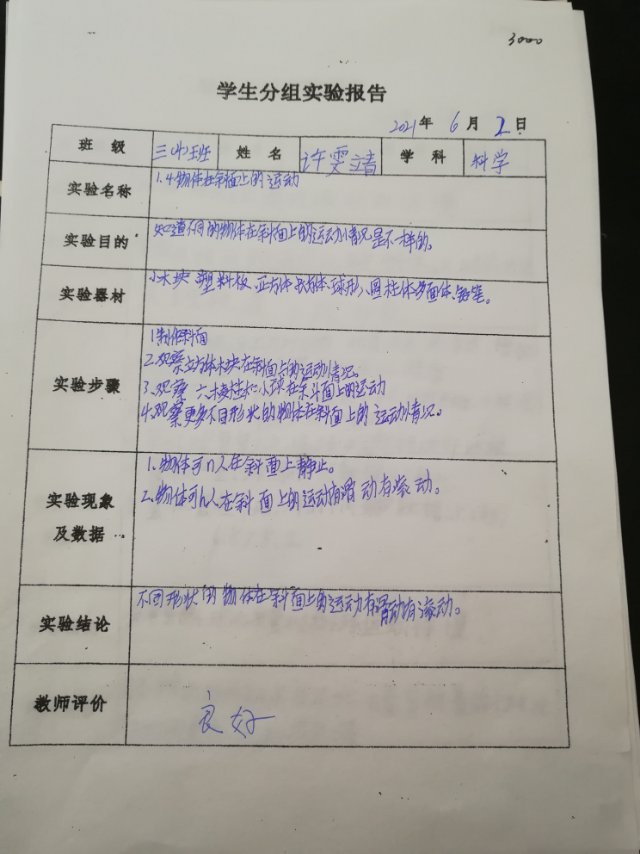 3000
学生分组实验报告
2021年 6月 2日
班 级 三(1)班 姓 名 许雯婧 学 科 科学
实验名称 1.4物体在斜面上的运动
实验目的 知道不同的物体在斜面上的运动情况是不一样的。
实验器材 小木块、塑料板、正方体、长方体、球形、圆柱体、多面体、铅笔。
实验步骤
1.制作斜面
2.观察立方体木块在斜面上的运动情况。
3.观察 六棱柱和小球在斜面上的运动
4.观察更多不同形状的物体在斜面上的运动情况。
实验现象
及数据
1.物体可以在斜面上静止。
2.物体可以在斜面上的运动有滑动有滚动。
实验结论 不同形状的物体在斜面上的运动有滑动有滚动。
教师评价 良好